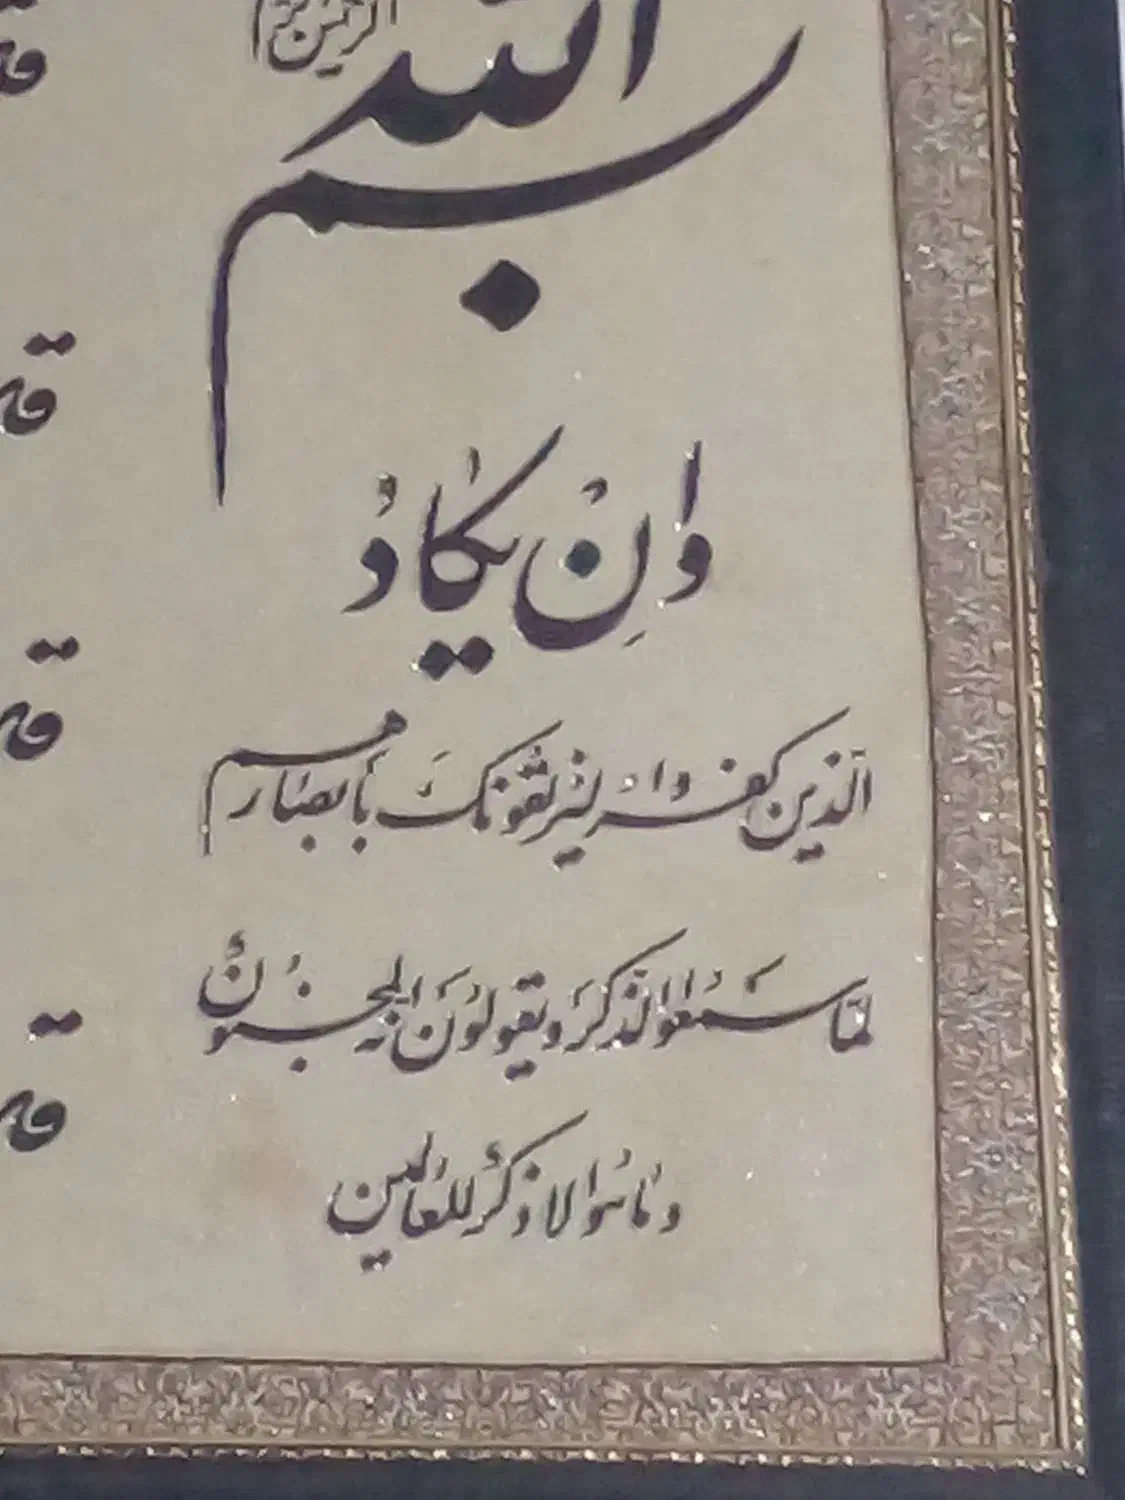 بسم الله الرحمن
وَاِنْ یَکادُ
الَّذین کفروا لیزلقونک بأبصارهم
لمّا سَمعُوا الذّکرَ و یقولُونَ انّه لمجنُونٌ
و مٰا هُوَ الا ذکرٌ للعٰالمین
قل
قل
قل
قل